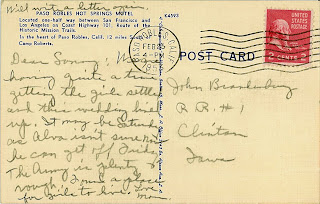 Will write a letter soon.
PASO ROBLES HOT SPRINGS MOTEL
Located one-half way between San Francisco and
Los Angeles on Coast Highway 101. Route of the
Historic Mission Trails.
In the heart of Paso Robles, Calif. 12 miles South of
Camp Roberts.
Dear Sonny:
having quite a time
getting the girls settled
and this wedding lined
up. It may be Saturday
as Alva isn't sure
he can get off Friday.
The Army is plenty
rough.
for girls to live. Love
Mom.
K4593
PASO ROBLES, CALIF.
FEB 25
4-PM
POST CARD
2 CENTS 2
John Brandenburg
R. R. # 1
Clinton
Iowa